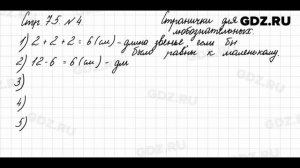 Стр 75. №4
Странички для любознательных.
GDZ.RU
1) 2 + 2 + 2 = 6 (см) - длина звеньев если бы были равны к маленькому.
2) 12 - 6 = 6 (см) - дм
3)
4)
5)